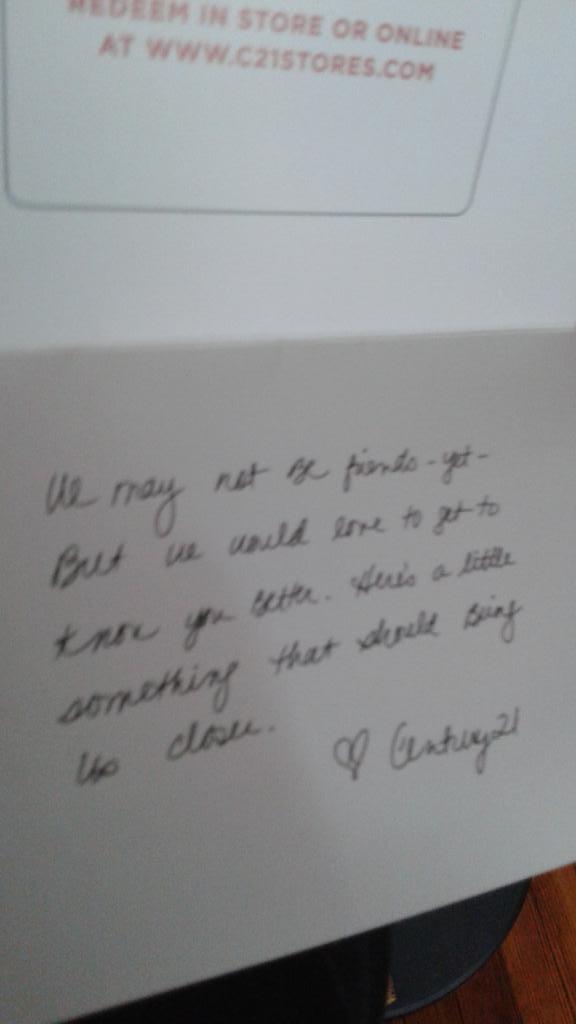 REDEEM IN STORE OR ONLINE
AT WWW.C21STORES.COM
We may not be friends - yet -
But we would love to get to
know you better. Here's a little
something that should bring
us closer.
♡ Century 21